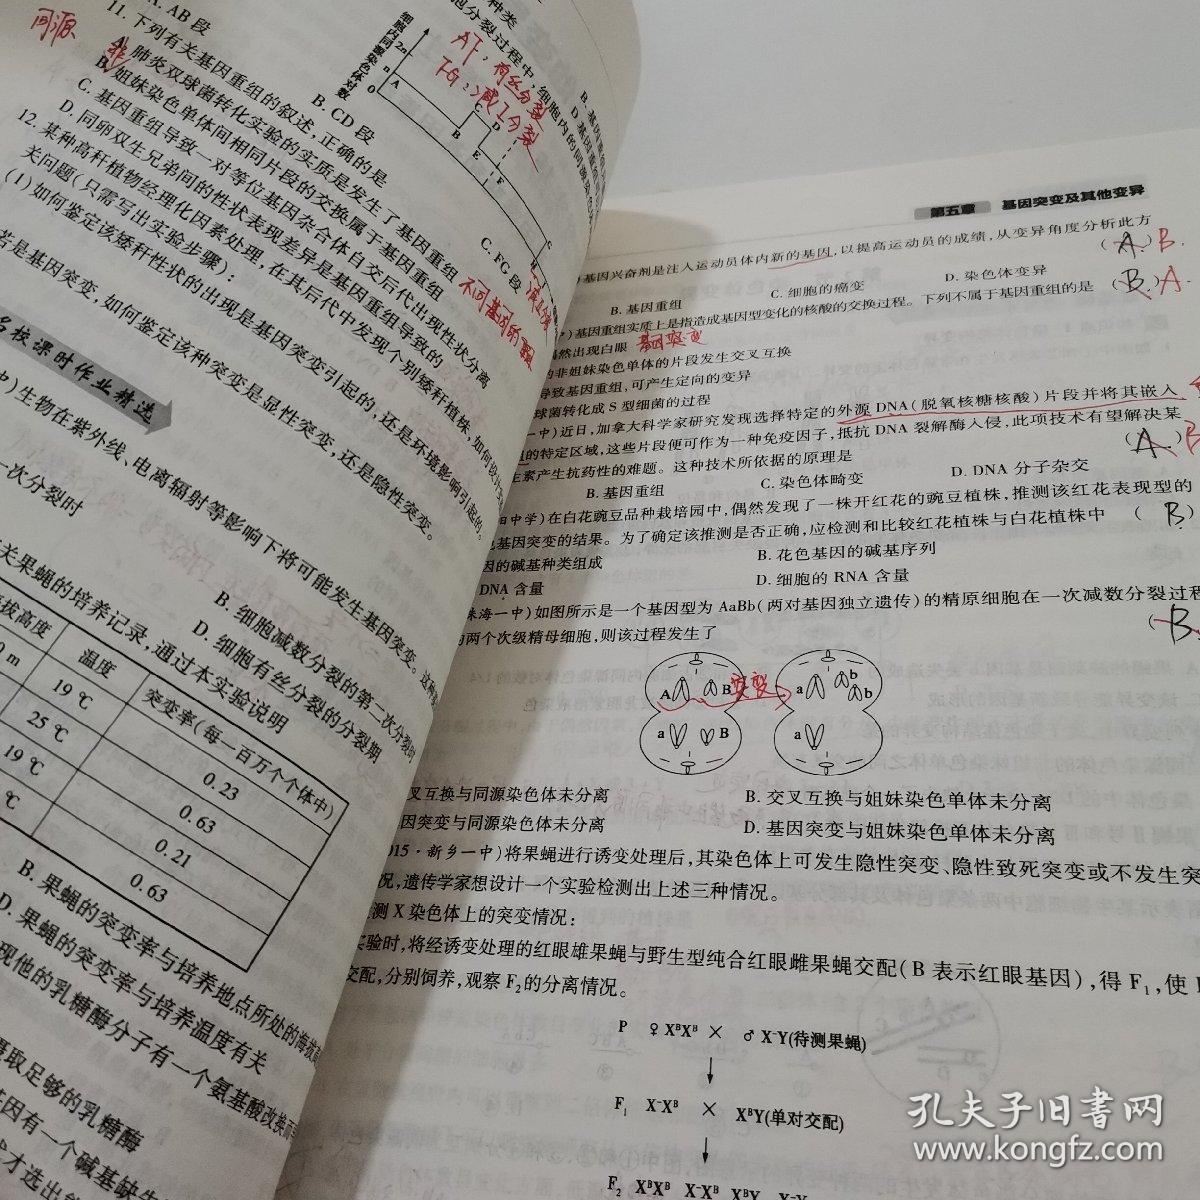 同源
A. AB 段
B. CD 段
C. FG 段
细胞内同源染色体对数
2n
n
0
A
B
C
D
E
F
11. 下列有关基因重组的叙述,正确的是
A. 肺炎双球菌转化实验的实质是发生了基因重组
B. 姐妹染色单体间相同片段的交换属于基因重组
C. 基因重组导致一对等位基因杂合体自交后代出现性状分离
不同基因的重组
D. 同卵双生兄弟间的性状表现差异是基因重组导致的
12. 某种高秆植物经理化因素处理,在其后代中发现个别矮秆植株,如何设计
关问题(只需写出实验步骤):
(1)如何鉴定该矮秆性状的出现是基因突变引起的,还是环境影响引起的。
若是基因突变,如何鉴定该种突变是显性突变,还是隐性突变。
名校课时作业精选
中)生物在紫外线、电离辐射等影响下将可能发生基因突变。这种
一次分裂时
B. 细胞减数分裂的第二次分裂时
D. 细胞有丝分裂的分裂期
关果蝇的培养记录,通过本实验说明
海拔高度
温度
突变率(每一百万个个体中)
0 m
19 ℃
0.23
25 ℃
0.63
19 ℃
0.21
℃
0.63
B. 果蝇的突变率与培养地点所处的海拔高
D. 果蝇的突变率与培养温度有关
现他的乳糖酶分子有一个氨基酸改换而
摄取足够的乳糖酶
基因有一个碱基缺失
第五章 基因突变及其他变异
基因兴奋剂是注入运动员体内新的基因,以提高运动员的成绩,从变异角度分析此方
( A )B.
B. 基因重组
C. 细胞的癌变
D. 染色体变异
)基因重组实质上是指造成基因型变化的核酸的交换过程。下列不属于基因重组的是
( B )A
偶然出现白眼 基因突变
的非姐妹染色单体的片段发生交叉互换
导致基因重组,可产生定向的变异
球菌转化成 S 型细菌的过程
一中)近日,加拿大科学家研究发现选择特定的外源 DNA(脱氧核糖核酸)片段并将其嵌入
的特定区域,这些片段便可作为一种免疫因子,抵抗 DNA 裂解酶入侵,此项技术有望解决某
生素产生抗药性的难题。这种技术所依据的原理是
( A )B
B. 基因重组
C. 染色体畸变
D. DNA 分子杂交
阳中学)在白花豌豆品种栽培园中,偶然发现了一株开红花的豌豆植株,推测该红花表现型的
色基因突变的结果。为了确定该推测是否正确,应检测和比较红花植株与白花植株中
( B )
因的碱基种类组成
B. 花色基因的碱基序列
DNA 含量
D. 细胞的 RNA 含量
珠海一中)如图所示是一个基因型为 AaBb(两对基因独立遗传)的精原细胞在一次减数分裂过程
的两个次级精母细胞,则该过程发生了
( B
A
B
突变
a
b
b
a
B
a
叉互换与同源染色体未分离
B. 交叉互换与姐妹染色单体未分离
因突变与同源染色体未分离
D. 基因突变与姐妹染色单体未分离
2015·新乡一中)将果蝇进行诱变处理后,其染色体上可发生隐性突变、隐性致死突变或不发生突
况,遗传学家想设计一个实验检测出上述三种情况。
测 X 染色体上的突变情况:
实验时,将经诱变处理的红眼雄果蝇与野生型纯合红眼雌果蝇交配(B 表示红眼基因),得 F₁,使 F
交配,分别饲养,观察 F₂的分离情况。
P ♀ XᴮXᴮ × ♂ X⁻Y(待测果蝇)
F₁ X⁻Xᴮ × XᴮY(单对交配)
F₂ XᴮXᴮ X⁻Xᴮ XᴮY X⁻Y
孔夫子旧书网
www.kongfz.com